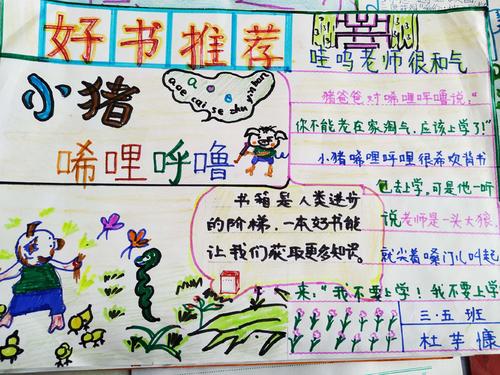 好书推荐
小猪
唏哩呼噜
哇呜老师很和气
猪爸爸对唏哩呼噜说，“
你不能老在家淘气，应该上学了!”
小猪唏哩呼哩很希欢背书
包去学。可是他一听
说老师是一头大狼，
就尖着嗓门儿叫起
来：“我不要上学！我不要上学
书箱是人类进步
的阶梯，一本好书能
让我们获取更多知识。
三·五班